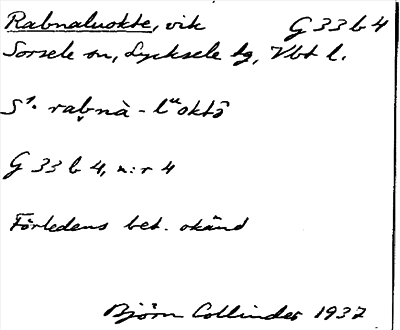 Rabnaluokte, vik G 33 b 4
Sorsele sn, Lycksele lg, Vbt l.
S¹· rab̭nà - lᵘoktō
G 33 b 4, n:r 4
Förledens bet. okänd
Björn Collinder 1937